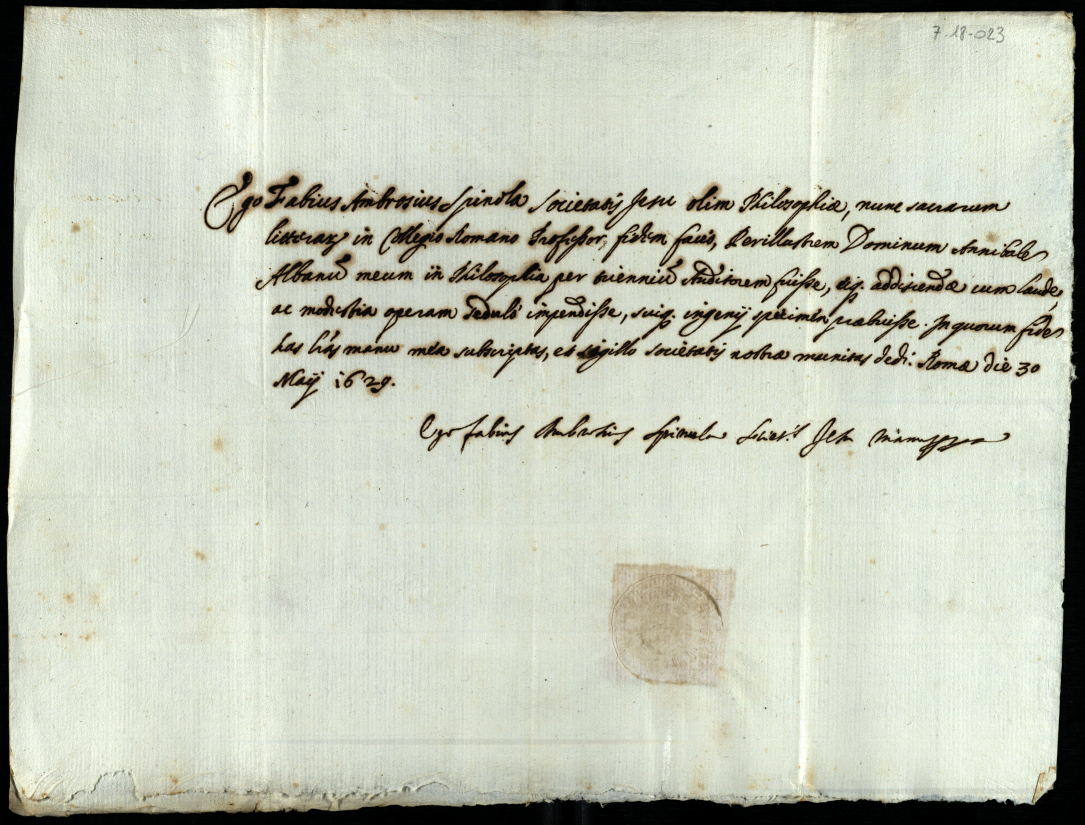 7-18-023
Ego Fabius Ambrosius Spinola Societatis Jesu olim Philosophiæ, nunc sacrarum
litteraꝝ in Collegio Romano Professor, fidem facio, Perillustrem Dominum Annibale
Albanū meum in Philosophia per trienniū Auditorem fuisse, eiq. addiscendæ cum laude
ac modestia operam sedulò impendisse, suiq. ingenij specimen præbuisse. In quorum fide
has lr̃as manu mea subscriptas, et sigillo societatis nostræ munitas dedi. Romæ die 30
Maij 1629.
Ego fabius Ambrosius Spinula Societ.s Jesu manu